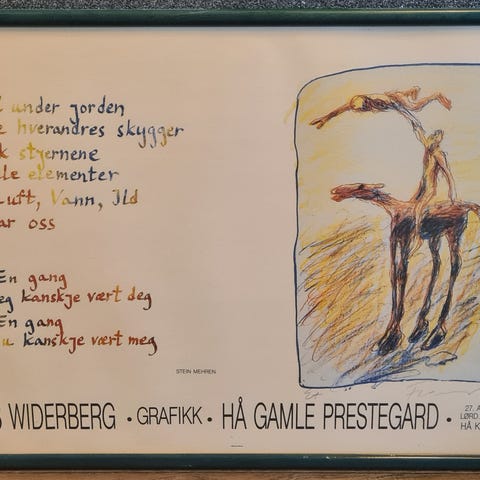 under jorden
hverandres skygger
stjernene
elementer
Luft, Vann, Ild
oss
En gang
kanskje vært deg
En gang
kanskje vært meg
STEIN MEHREN
WIDERBERG • GRAFIKK • HÅ GAMLE PRESTEGARD •
27.
LØRD.
HÅ K